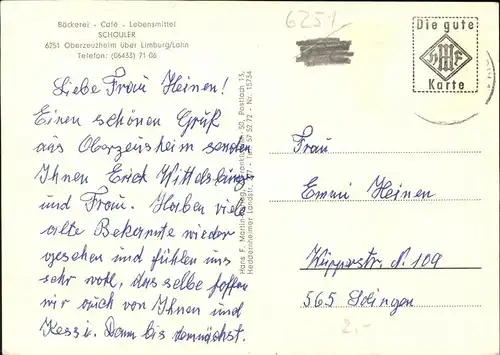 Bäckerei - Café - Lebensmittel
SCHOULER
6251 Oberzeuzheim über Limburg/Lahn
Telefon: (06433) 71 06
Liebe Frau Heinen!
Einen schönen Gruß
aus Oberzeusheim senden
Ihnen Erich
und Frau. Haben viele
alte Bekannte wieder
gesehen und fühlen uns
sehr wohl, das selbe hoffen
wir auch von Ihnen und
Kessi. Dann bis demnächst.
Hans F. Martin
Heddernheimer Landstr. Tel. 57 52 72 - Nr. 15754
6251
Die gute
HMF
Karte
Frau
Emmi Heinen
Küpperstr. N. 109
565 Solingen
2,-